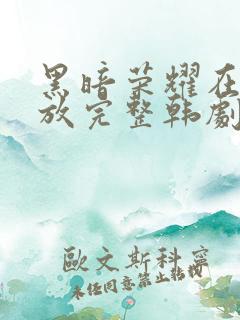 黑暗荣耀在
放完整韩劇
歐文斯科寧
未经同意禁止转载